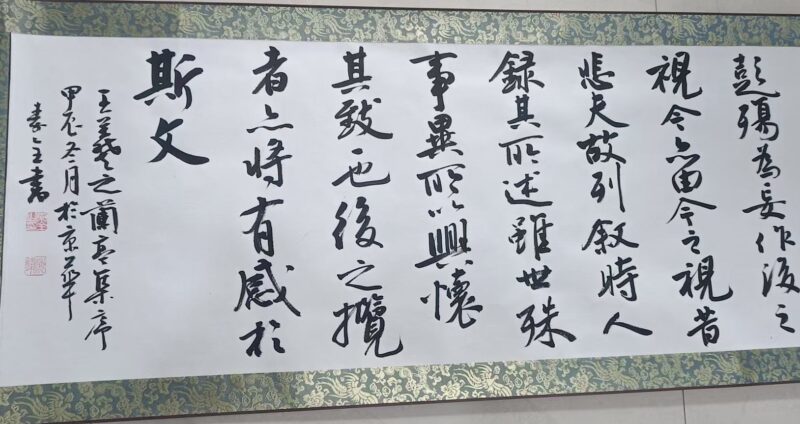 彭殤為妄作後之
視今亦由今之視昔
悲夫故列敘時人
録其所述雖世殊
事異所以興懷
其致也後之攬
者亦將有感於
斯文
王羲之蘭亭集序
甲辰冬月於京華
書